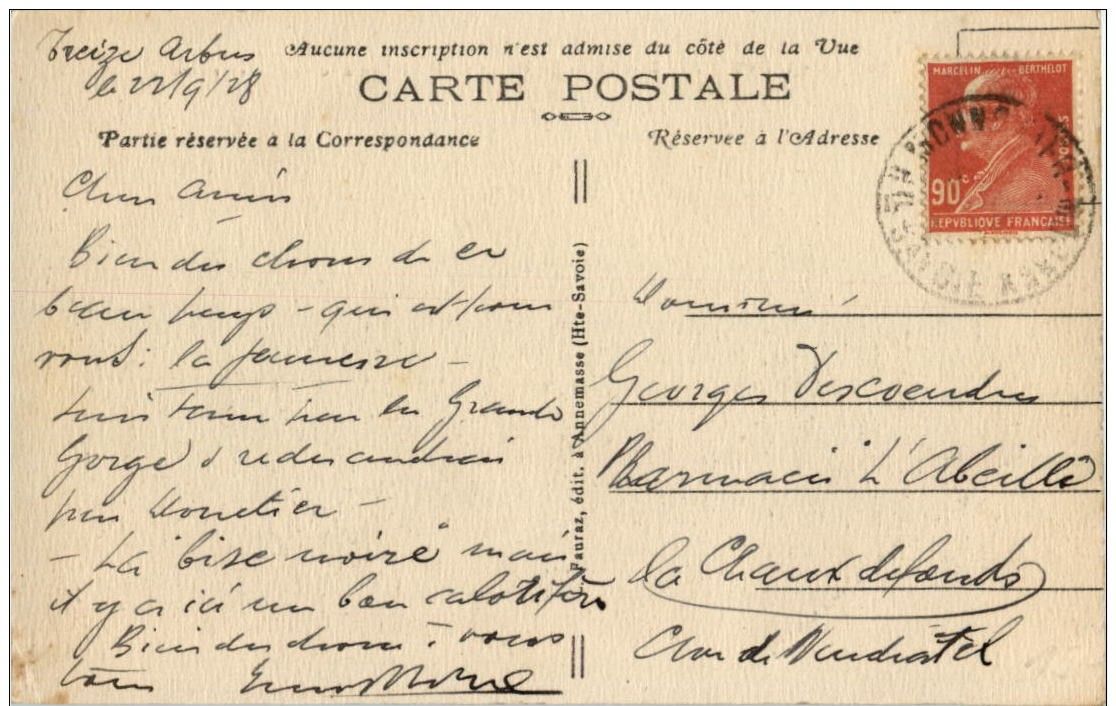 Treize Arbres
le 22/9/28
Aucune inscription n'est admise du côté de la Vue
CARTE POSTALE
Partie réservée à la Correspondance
Réservée à l'Adresse
MARCELIN BERTHELOT
90c
POSTES
REPVBLIQVE FRANÇAISE
Chers amis
Bien des choses de ce
beau pays - qui est pour
vous: la jeunesse -
par la Grande
Gorge & redescendrai
par Monetier -
- La "bise noire" mais
il y a ici un bon calorifère
Bien des choses à vous
tous
Pauraz, édit. à Annemasse (Hte-Savoie)
Monsieur
Georges Descoeudres
Pharmacie L'Abeille
La Chaux de fonds
Cton de Neuchâtel